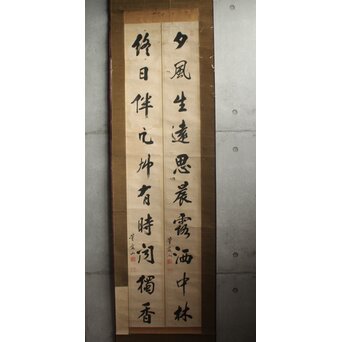 夕風生遠思晨露洒中林
終日伴元艸有時闻獨香